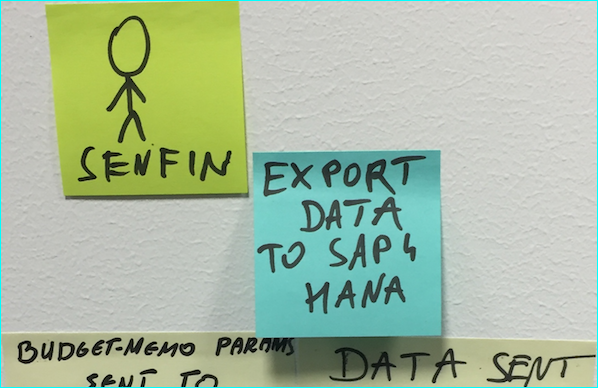 SENFIN
EXPORT
DATA
TO SAP4
HANA
BUDGET-MEMO PARAMS
SENT TO
DATA SENT